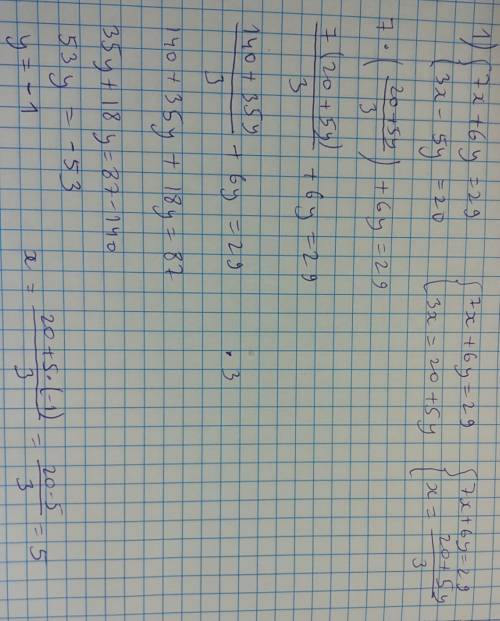 1) { 7x + 6y = 29    { 7x + 6y = 29    { 7x + 6y = 29
{ 3x - 5y = 20    { 3x = 20 + 5y    { x = (20 + 5y)/3
7 · ((20 + 5y)/3) + 6y = 29
7(20 + 5y)/3 + 6y = 29
(140 + 35y)/3 + 6y = 29    · 3
140 + 35y + 18y = 87
35y + 18y = 87 - 140
53y = -53
y = -1    x = (20 + 5 · (-1))/3 = (20 - 5)/3 = 5